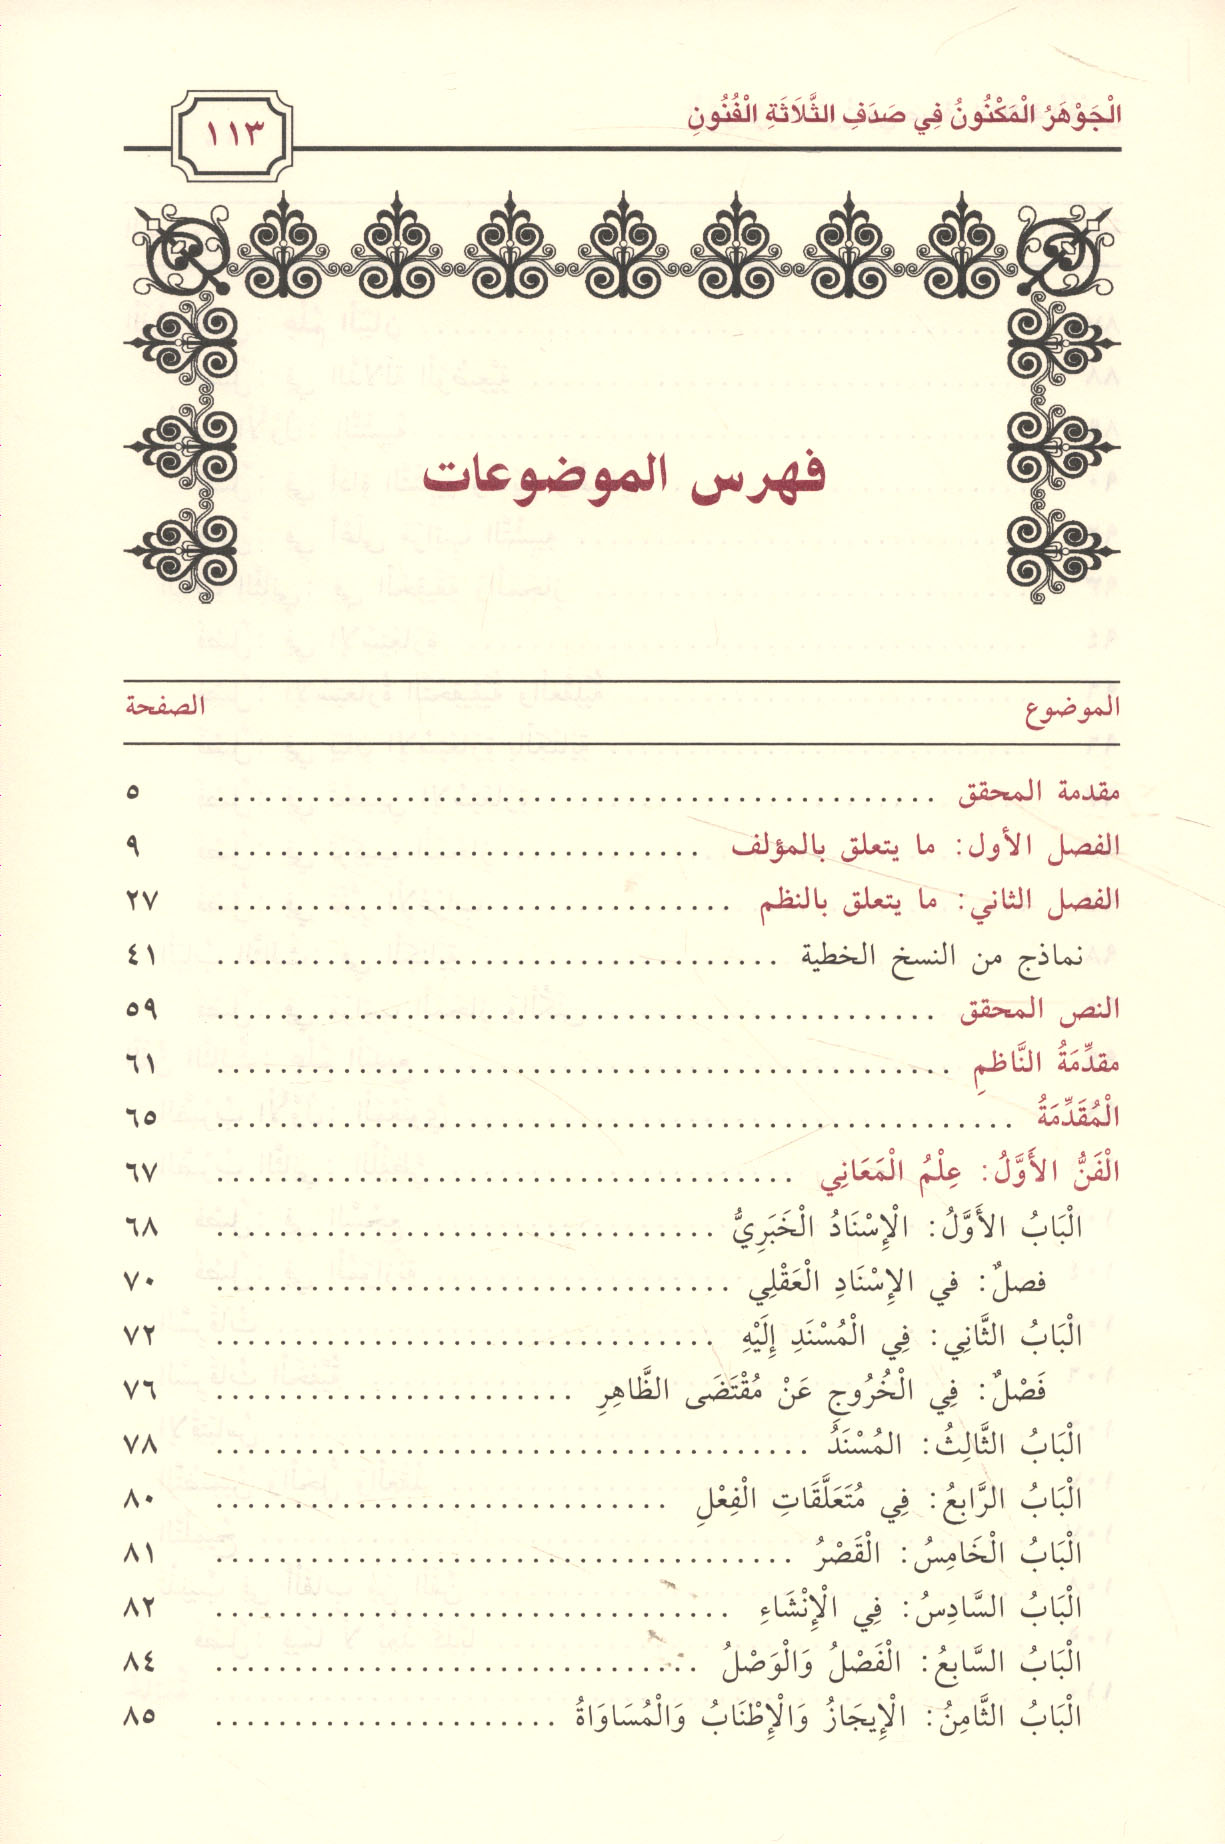 الْجَوْهَرُ الْمَكْنُونُ فِي صَدَفِ الثَّلَاثَةِ الْفُنُونِ ١١٣
فهرس الموضوعات
الموضوع الصفحة
مقدمة المحقق ٥
الفصل الأول: ما يتعلق بالمؤلف ٩
الفصل الثاني: ما يتعلق بالنظم ٢٧
نماذج من النسخ الخطية ٤١
النص المحقق ٥٩
مقدِّمَةُ النَّاظمِ ٦١
الْمُقَدِّمَةُ ٦٥
الْفَنُّ الأَوَّلُ: عِلْمُ الْمَعَانِي ٦٧
الْبَابُ الأَوَّلُ: الْإِسْنَادُ الْخَبَرِيُّ ٦٨
فصلٌ: في الإِسْنَادِ الْعَقْلِي ٧٠
الْبَابُ الثَّانِي: فِي الْمُسْنَدِ إِلَيْهِ ٧٢
فَصْلٌ: فِي الْخُرُوجِ عَنْ مُقْتَضَى الظَّاهِرِ ٧٦
الْبَابُ الثَّالِثُ: المُسْنَدُ ٧٨
الْبَابُ الرَّابِعُ: فِي مُتَعَلَّقَاتِ الْفِعْلِ ٨٠
الْبَابُ الْخَامِسُ: الْقَصْرُ ٨١
الْبَابُ السَّادِسُ: فِي الْإِنْشَاءِ ٨٢
الْبَابُ السَّابِعُ: الْفَصْلُ وَالْوَصْلُ ٨٤
الْبَابُ الثَّامِنُ: الْإِيجَازُ وَالْإِطْنَابُ وَالْمُسَاوَاةُ ٨٥